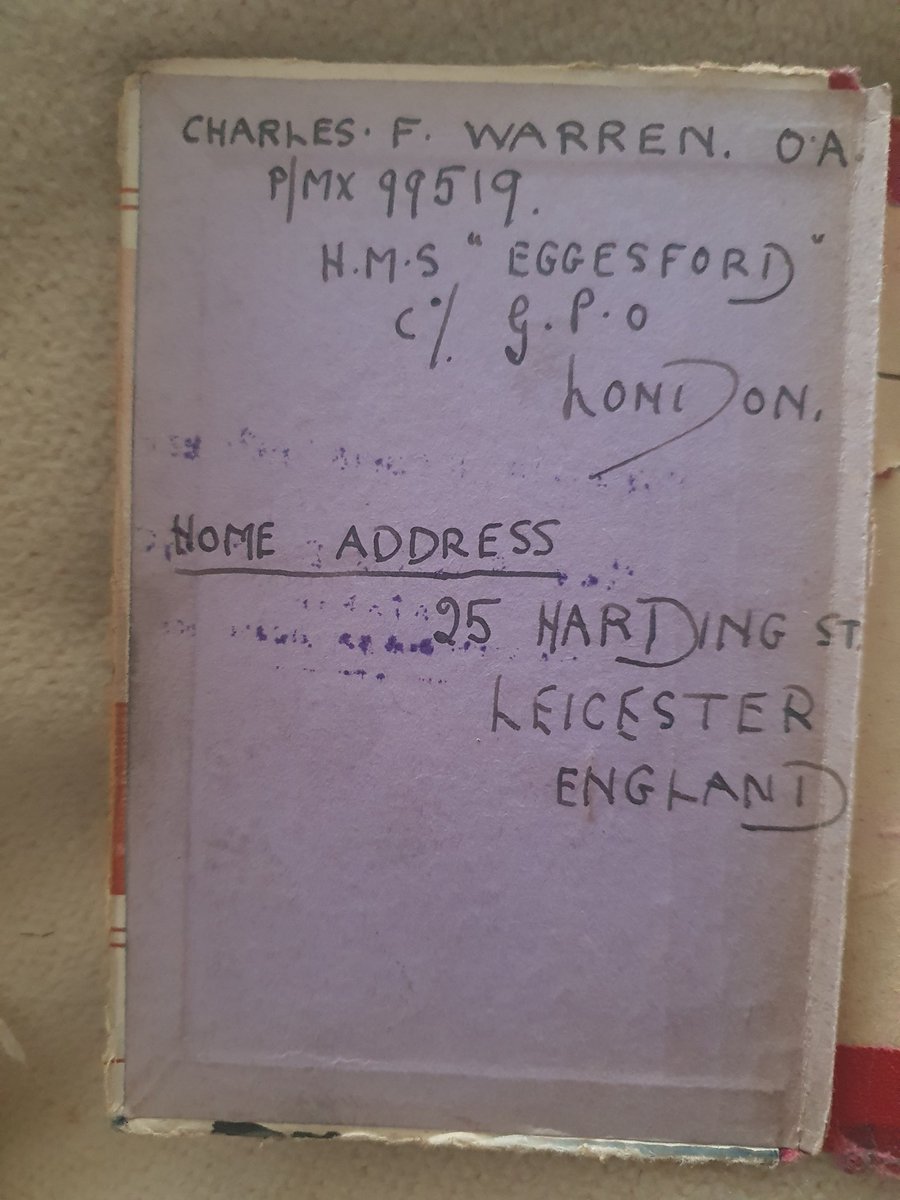 CHARLES. F. WARREN. O.A.
P/MX 99519.
H.M.S "EGGESFORD"
C/. G.P.O
LONDON.
HOME ADDRESS
25 HARDING ST.
LEICESTER
ENGLAND